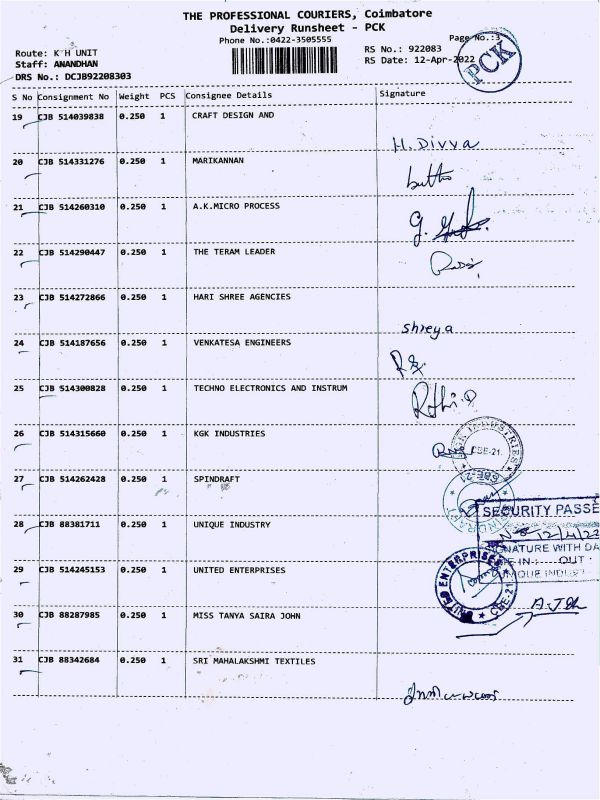 THE PROFESSIONAL COURIERS, Coimbatore
Delivery Runsheet - PCK
Phone No.:0422-3505555
Page No.:3
Route: K H UNIT
RS No.: 922083
Staff: ANANDHAN
RS Date: 12-Apr-2022
PCK
DRS No.: DCJB92208303
S No Consignment No Weight PCS Consignee Details Signature
19 CJB 514039838 0.250 1 CRAFT DESIGN AND
H. Divya
20 CJB 514331276 0.250 1 MARIKANNAN
21 CJB 514260310 0.250 1 A.K.MICRO PROCESS
22 CJB 514290447 0.250 1 THE TERAM LEADER
23 CJB 514272866 0.250 1 HARI SHREE AGENCIES
Shreya
24 CJB 514187656 0.250 1 VENKATESA ENGINEERS
25 CJB 514300828 0.250 1 TECHNO ELECTRONICS AND INSTRUM
26 CJB 514315660 0.250 1 KGK INDUSTRIES
KGK INDUSTRIES
CBE-21.
27 CJB 514262428 0.250 1 SPINDRAFT
SPINDRAFT
CBE-21
SECURITY PASSE
28 CJB 88381711 0.250 1 UNIQUE INDUSTRY
12/4/22
SIGNATURE WITH DA
OUT
29 CJB 514245153 0.250 1 UNITED ENTERPRISES
UNITED ENTERPRISES
CBE-21
30 CJB 88287985 0.250 1 MISS TANYA SAIRA JOHN
31 CJB 88342684 0.250 1 SRI MAHALAKSHMI TEXTILES